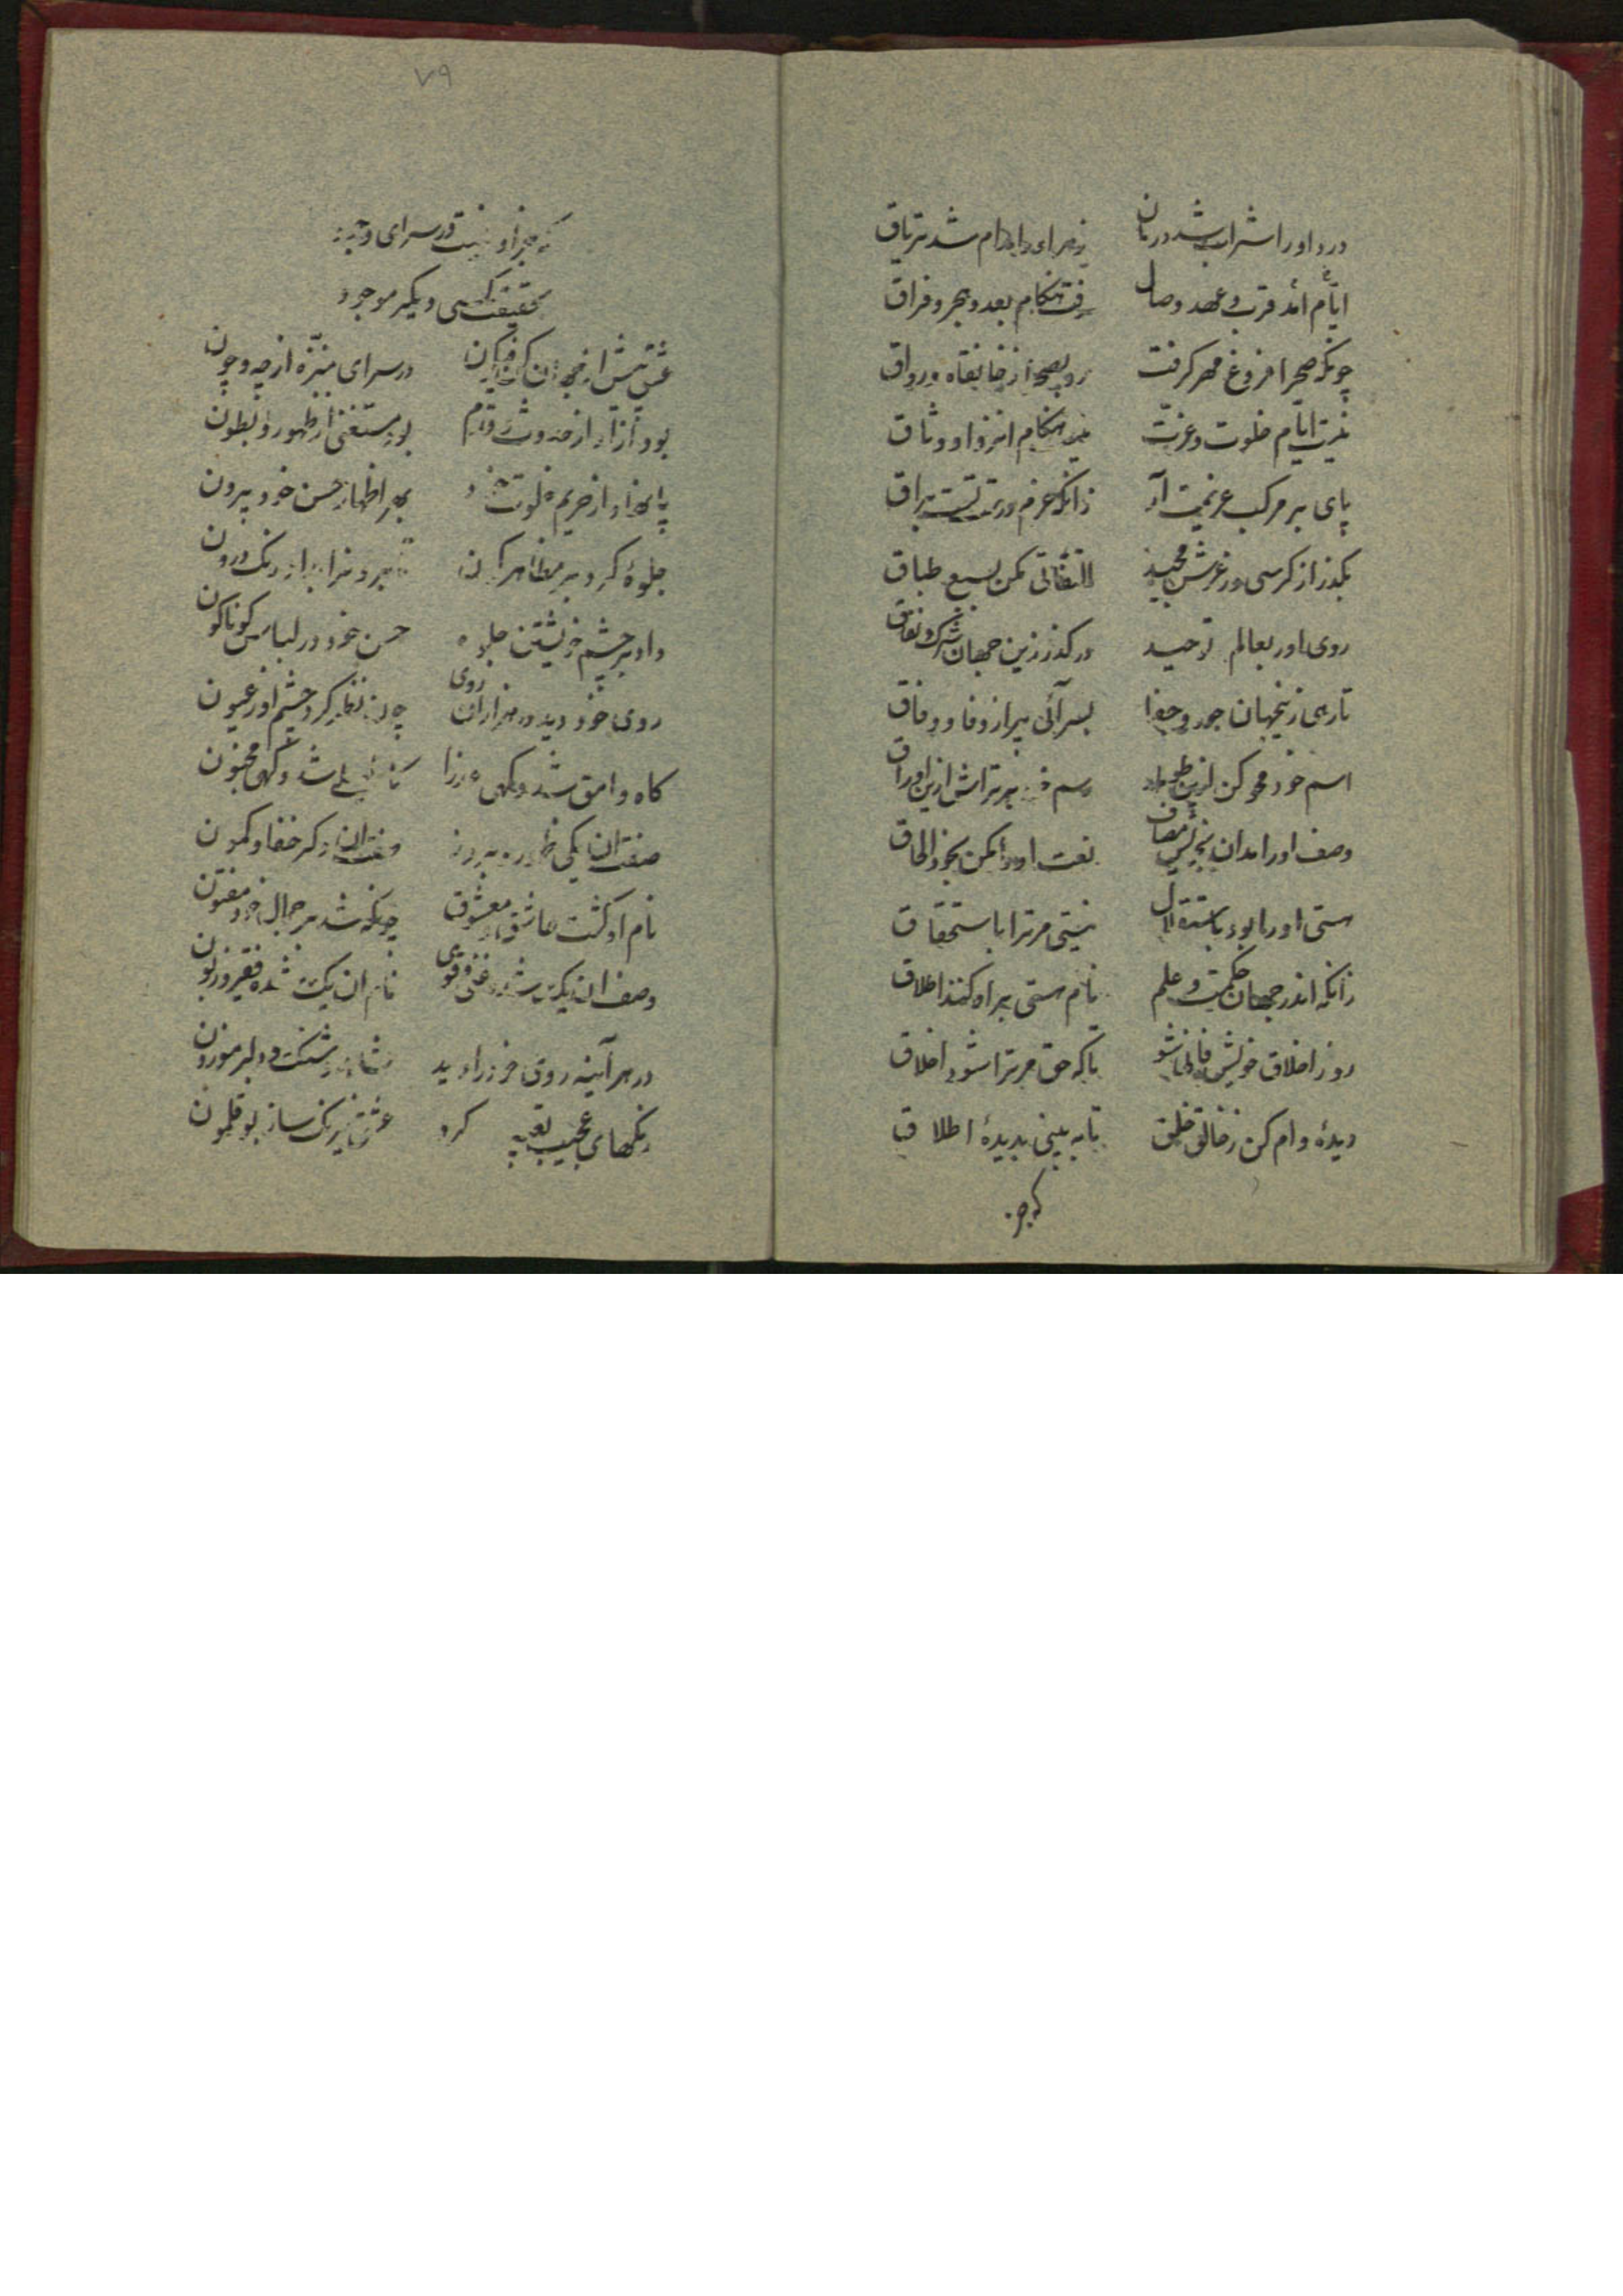 درد او را شراب شد درمان زهر او را مدام شد تریاق
ایام آمد قرب و عهد وصال رفت هنکام بعد و هجر و فراق
چونکه صحرا فروغ مهر کرفت رو بصحرا ز خانقاه و رواق
نیست ایام خلوت و عزلت نیست هنکام انزوا و وثاق
پای بر مرکب عزیمت آر زانکه عزم درست تست براق
بکذر از کرسی و ز عرش مجید التفاتی مکن بسبع طباق
روی اور بعالم توحید در کذر زین جهان شرک و نفاق
تا رهی زینجهان جور و جفا بسرآئی پر از وفا و وفاق
اسم خود محو کن ازین طومار رسم خود بر تراش ازین اوراق
وصف او را مدان بخویش مضاف نعت او را مکن بخود الحاق
هستی او را بود باستقلال نیستی مر ترا باستحقاق
زانکه اندر جهان حکمت و علم نام هستی براو کنند اطلاق
رو ز اخلاق خویش فانی شو تا که حق مر ترا شود اخلاق
دیدهٔ وام کن ز خالق خلق تا به بینی بدیدهٔ اطلاق
که جز
۷۹
که جز او نیست در سرای وجود
بحقیقت کسی دیکر موجود
عشق پیش از جهان کن فیکون در سرای منزه از چه و چون
بود آزاد از حدوث و قدم بود مستغنی از ظهور و بطون
پا نهاد از حریم خلوت خود بهر اظهار حسن خود بیرون
جلوهٔ کرد بر مظاهر کون برون درون
داد بر چشم خویشتن جلوه حسن خود در لباس کوناکون
روی خود دید در هزاران روی چون نظر کرد چشم او ز عیون
کاه وامق شد و کهی عذرا کاه لیلی شد و کهی مجنون
صفت ان یکی ظهور و بروز صفت ان دکر خفا و کمون
نام او کشت عاشق و معشوق چونکه شد بر جمال خود مفتون
وصف ان یک شده غنی و قوی نام ان یک شده فقیر و زبون
در هر آینه روی خود را دید
رنکهای عجیب تعبیه کرد عشق نیرنک ساز بوقلمون